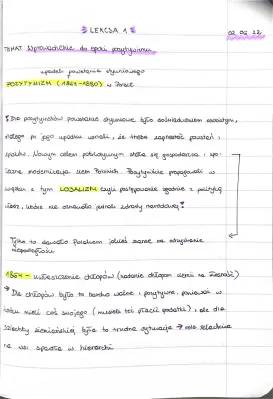 LEKCJA 1
02.09.22
TEMAT: Wprowadzenie do epoki pozytywizmu
upadek powstania styczniowego
POZYTYWIZM (1864-1890) w Polsce
! Dla pozytywistów powstanie styczniowe było
dlatego po jego upadku uznali, że trzeba zaprzestać powstań i
spisków. Nowym celem politycznym stała się gospodarcza i spo-
łeczna modernizacja ziem Polskich. Pozytywiści proponowali w
związku z tym LOJALIZM czyli postępowanie zgodnie z polityką
władz, które nie oznaczało jednak zdrady narodowej!
Tylko to dawało Polakom jakieś szanse na odzyskanie
niepodległości
1864 - uwłaszczenie chłopów (nadanie chłopom ziemi na własność)
→ Dla chłopów było to bardzo ważne i pozytywne, ponieważ w
końcu mieli coś swojego (musieli też płacić podatki), ale dla
szlachty ziemiańskiej była to trudna sytuacja → rola szlachcica
na wsi spadła w hierarchii